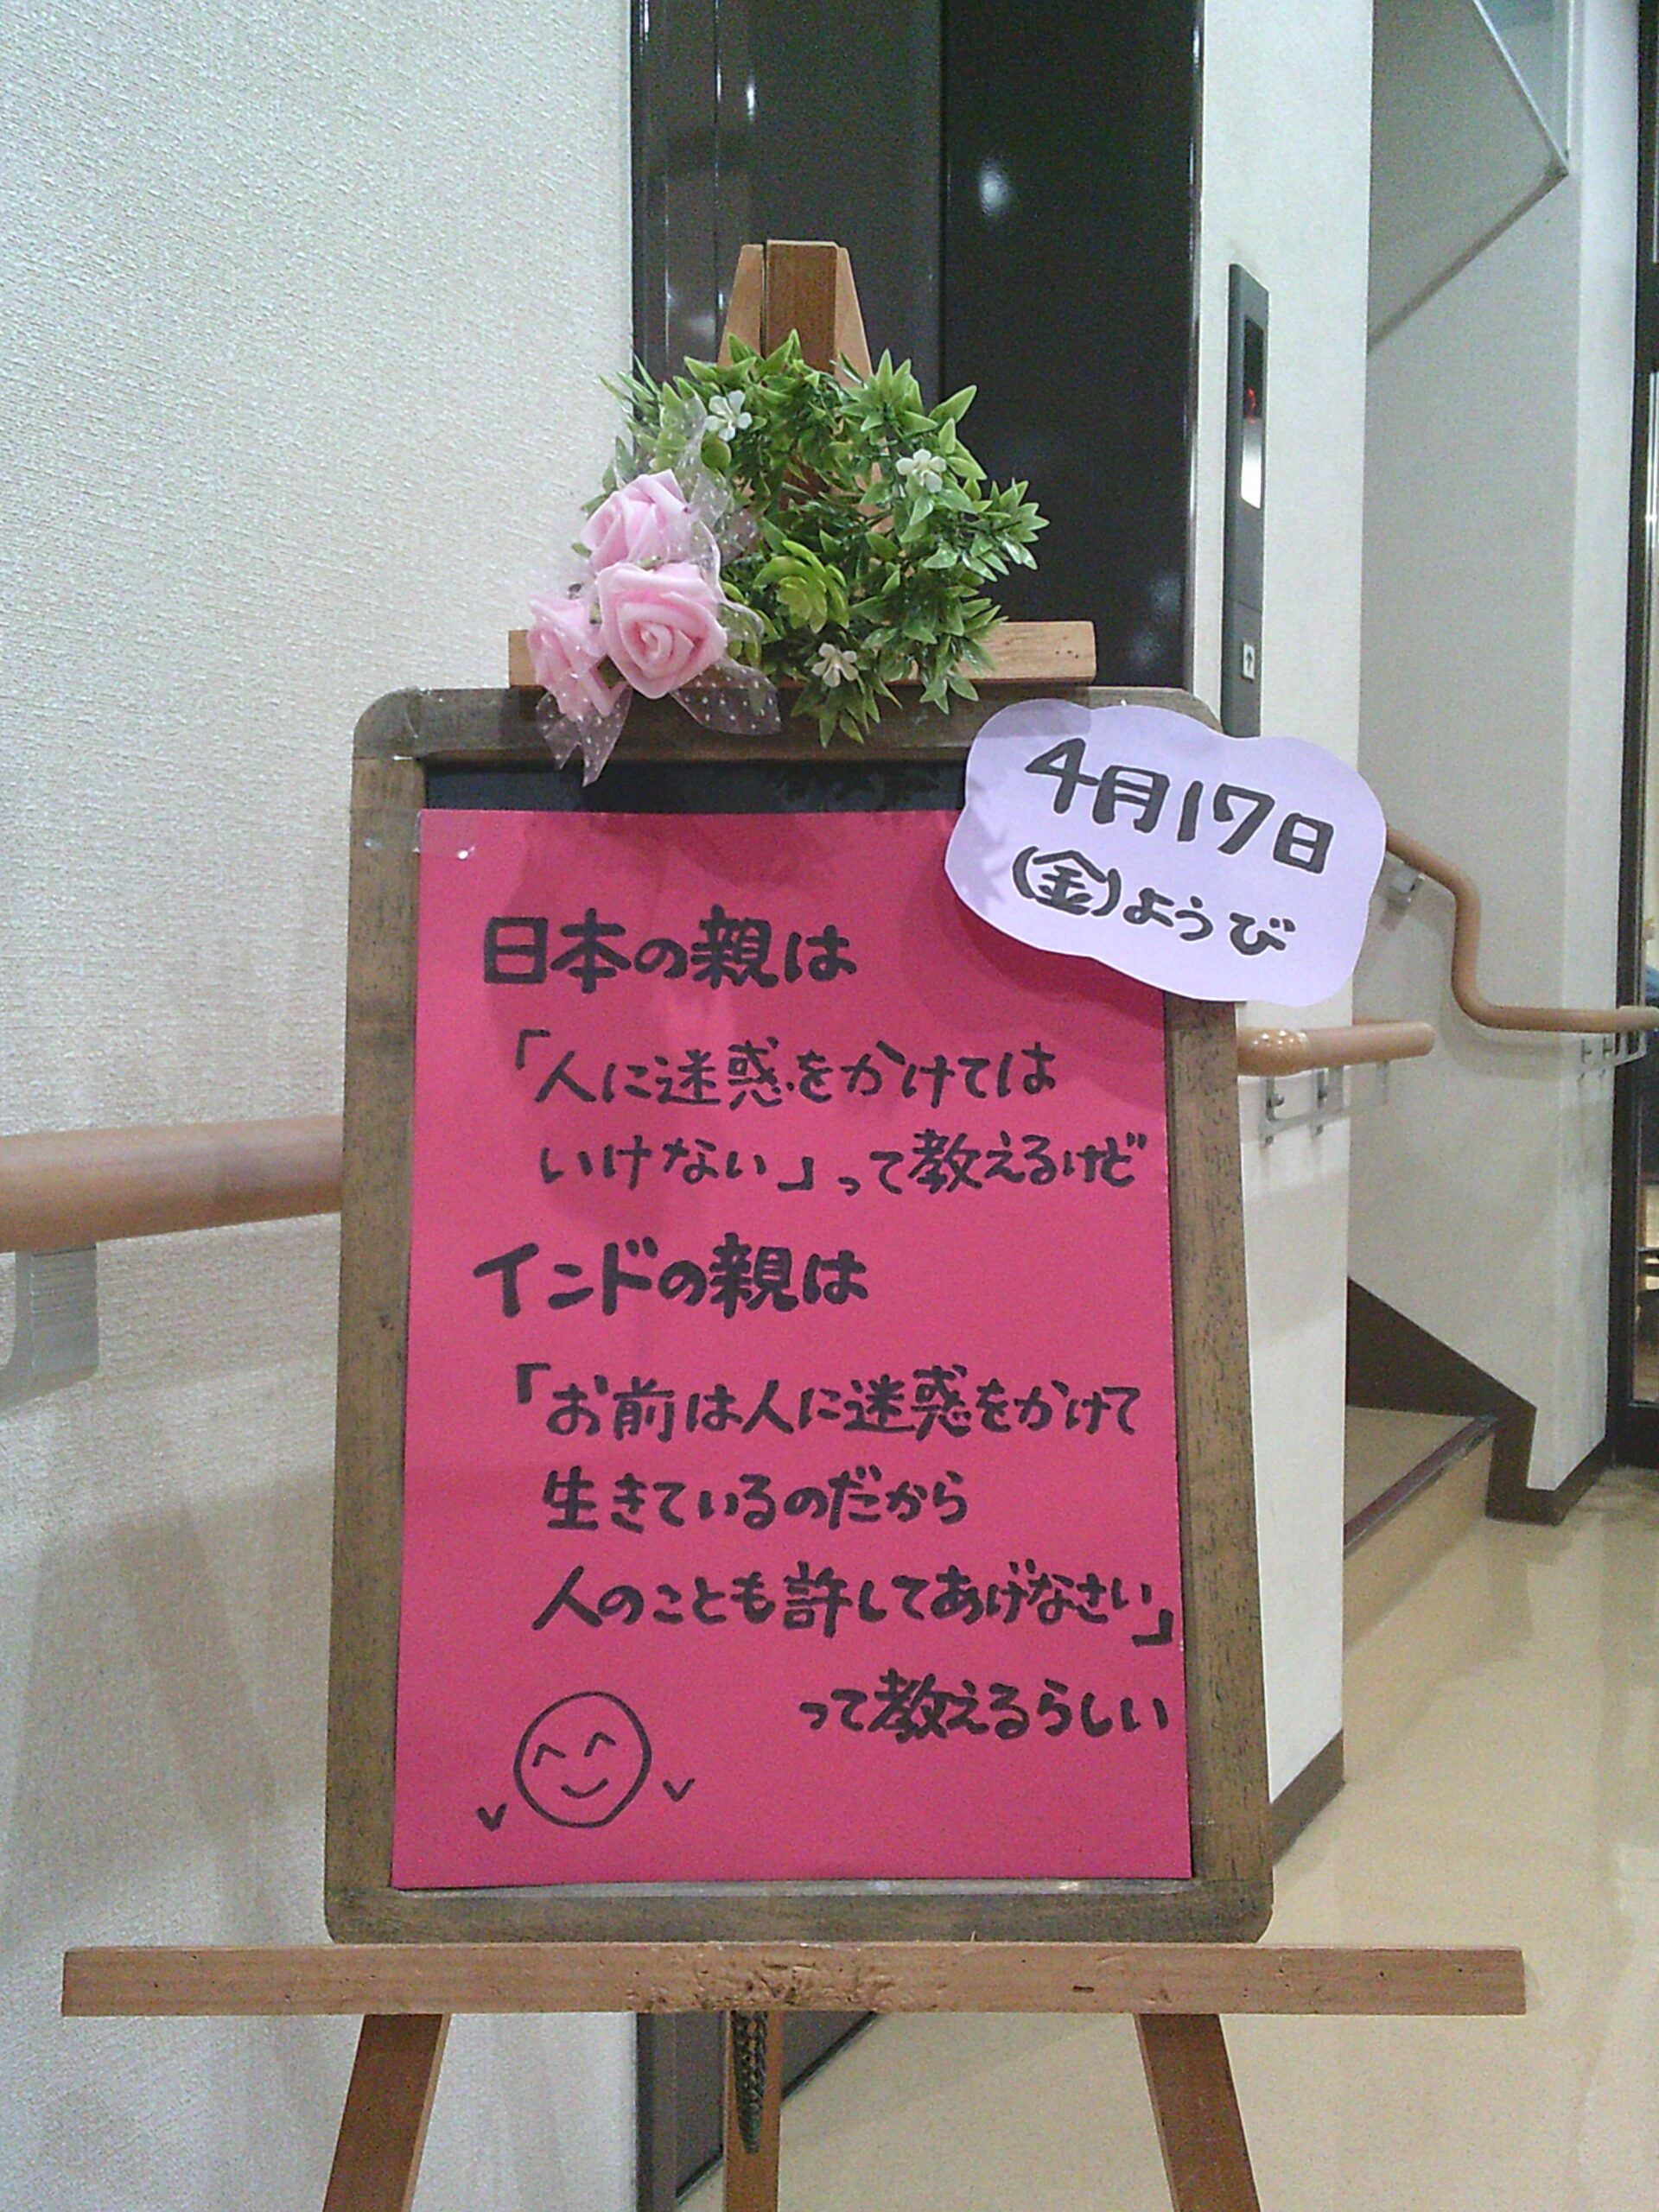 4月17日
(金)ようび
日本の親は
「人に迷惑をかけては
いけない」って教えるけど
インドの親は
「お前は人に迷惑をかけて
生きているのだから
人のことも許してあげなさい」
って教えるらしい